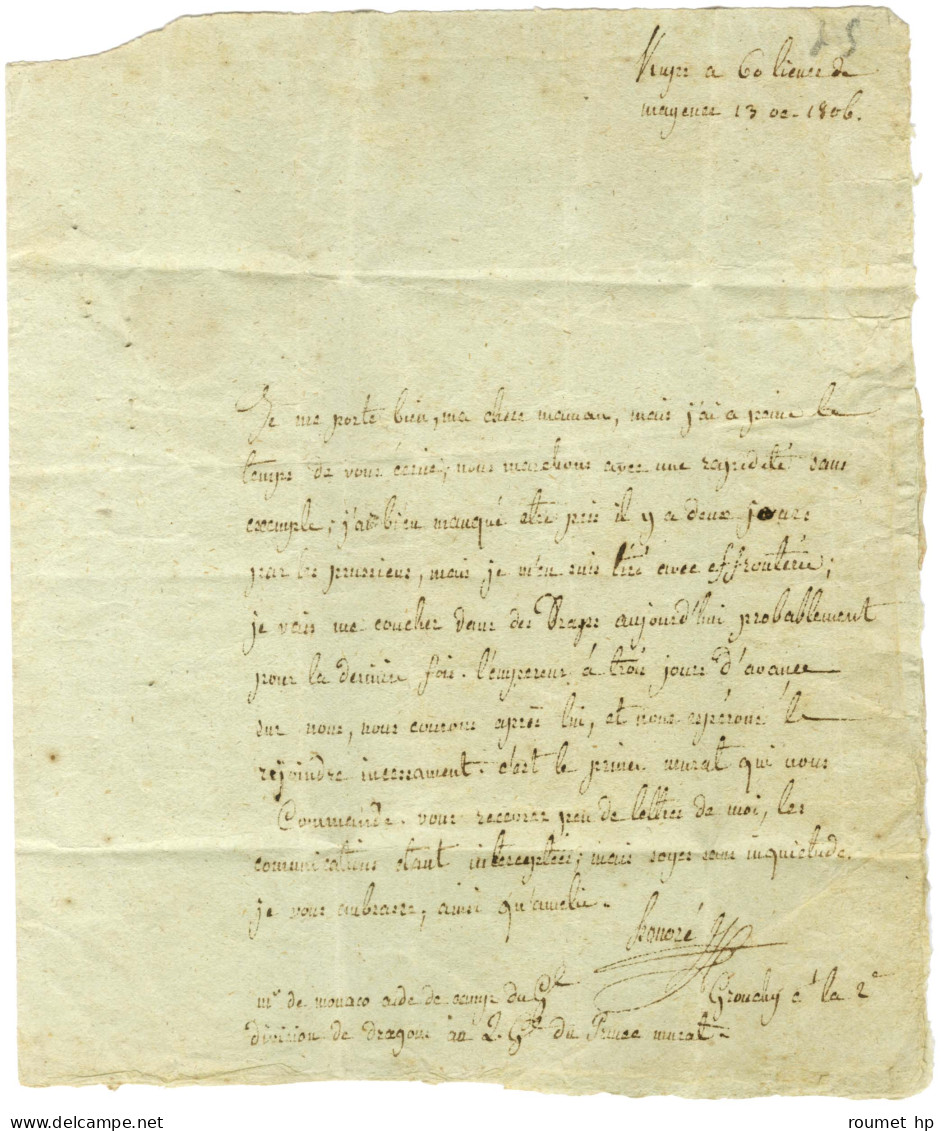 25
a 60 lieues de
mayence 13 oc. 1806.
Je me porte bien, ma chere maman, mais j'ai a peine le
temps de vous écrire, nous marchons avec une rapidité sans
exemple; j'ai bien manqué etre pris il y a deux jours
par les prussiens, mais je m'en suis tiré avec effronterie;
je vais me coucher dans des Draps aujourd'hui probablement
pour la dernière fois. l'empereur à trois jours d'avance
sur nous, nous courons après lui, et nous espérons le
rejoindre incessament. c'est le prince murat qui nous
Commande. vous recevrez peu de lettres de moi, les
communications étant interceptées; mais soyez sans inquietude.
je vous embrasse, ainsi qu'amelie.
honoré
mr de monaco aide de camp du Gl Grouchy à la 2e
division de dragons au q. Gl du Prince murat.
roumet hp